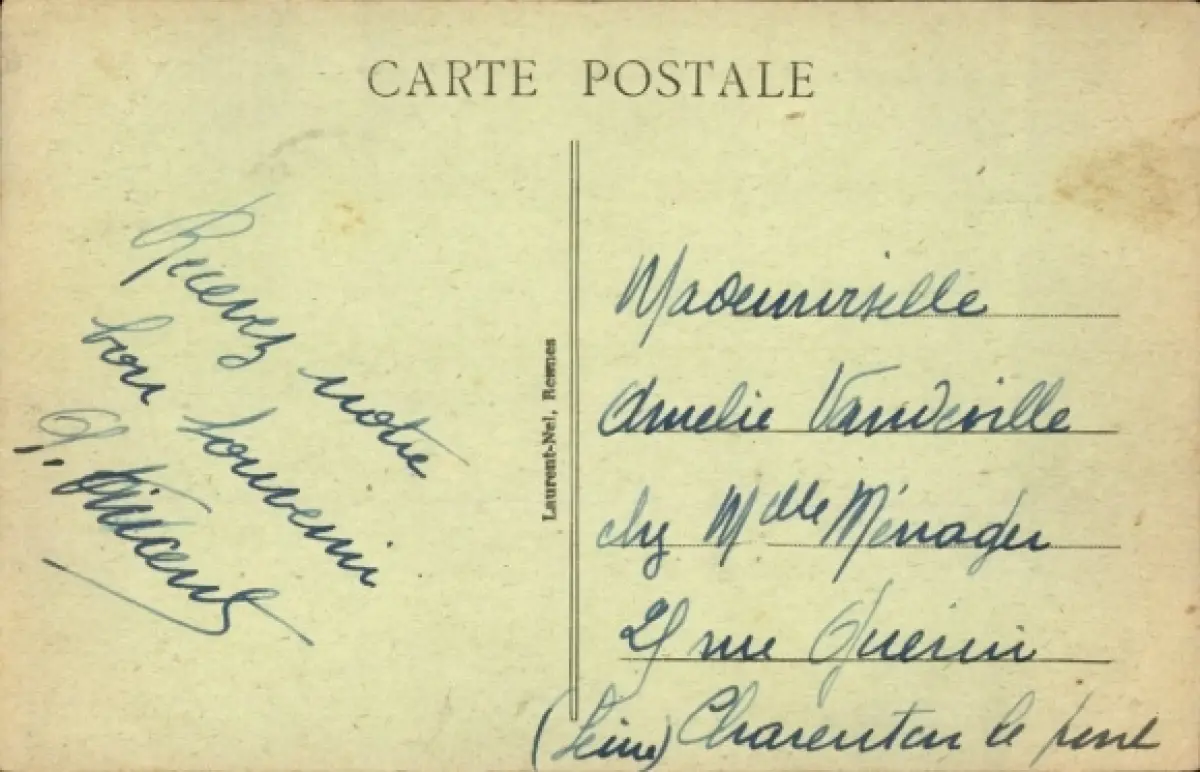 CARTE POSTALE
Recevez notre
bon souvenir
G. Vincent
Laurent-Nel, Rennes
Mademoiselle
Amelie Vandeville
chez Mdlle Ménager
rue Guerin
(Seine) Charenton le pont